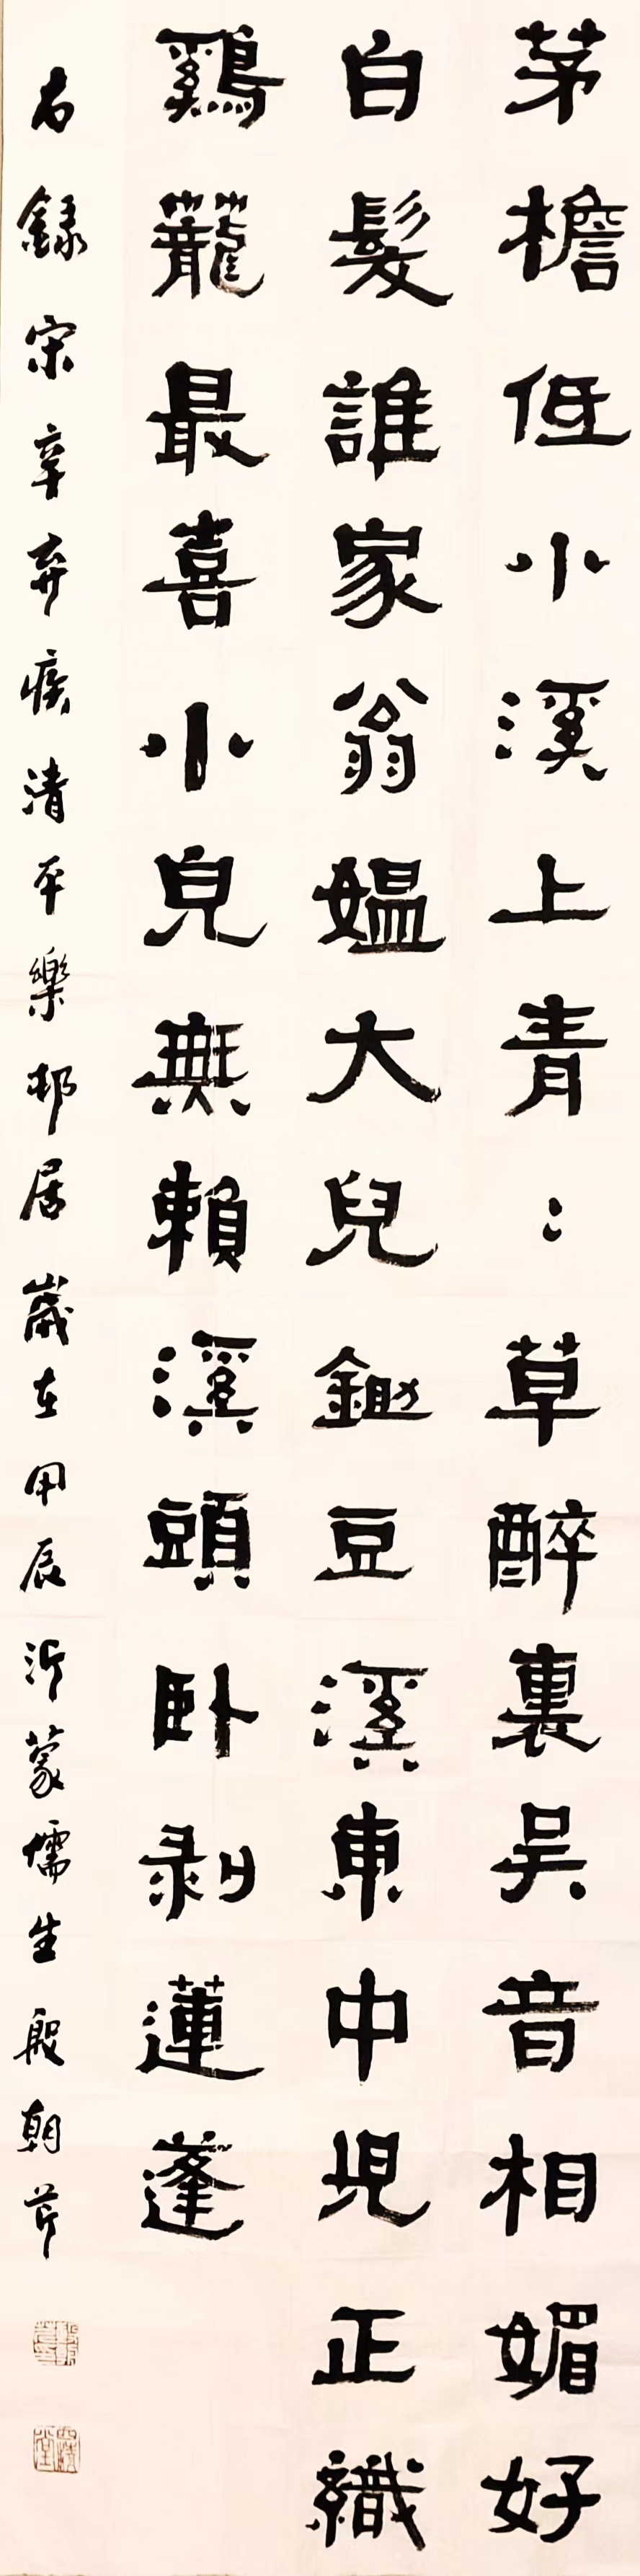 茅檐低小溪上青〻草醉裏吴音相媚好
白髮誰家翁媼大兒鋤豆溪東中児正織
鷄蘢最喜小皃無賴溪頭卧剥蓮蓬
右録宋辛弃疾清平樂邨居歲在甲辰沂蒙儒生殷朝芹